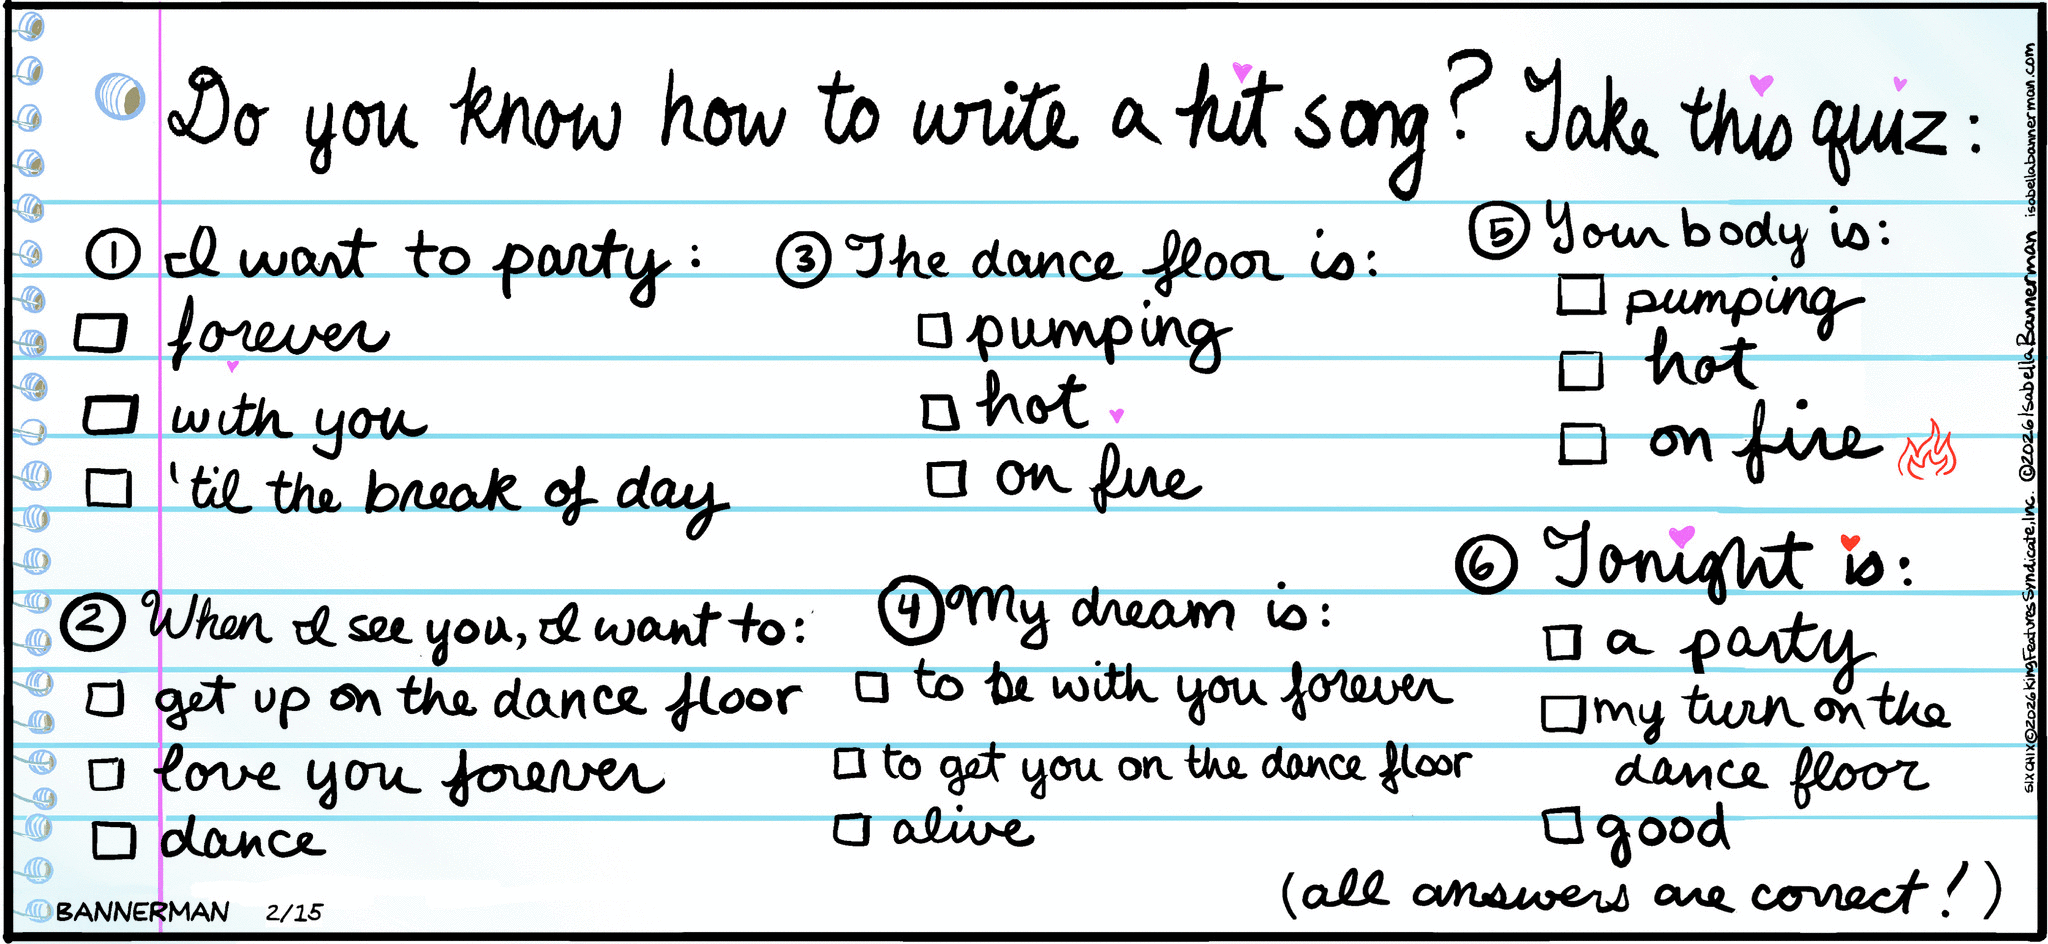 Do you know how to write a hit song? Take this quiz:
① I want to party:
forever
with you
'til the break of day
② When I see you, I want to:
get up on the dance floor
love you forever
dance
③ The dance floor is:
pumping
hot
on fire
④ My dream is:
to be with you forever
to get you on the dance floor
alive
⑤ Your body is:
pumping
hot
on fire
⑥ Tonight is:
a party
my turn on the
dance floor
good
(all answers are correct!)
BANNERMAN 2/15
SIX CHIX©2026 King Features Syndicate, Inc. ©2026 Isabella Bannerman isabellabannerman.com